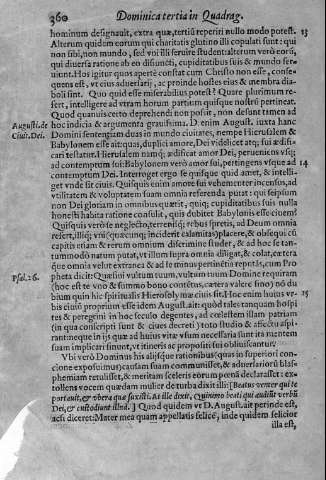 360 Dominica tertia in Quadrag.
hominum designauit, extra quæ, tertiũ reperiri nullo modo potest. 13
Alterum quidem eorum qui charitatis glutino illi copulati sunt: qui
non sibi, non mundo, sed voi illi seruire student: alterum verò eorũ,
qui diuersa ratione ab eo disiuncti, cupiditatibus suis & mundo ser-
uiunt. Hos igitur quos apertè constat cum Christo non esse, conse-
quens est, vt eius aduersarij, ac proinde hostes eius & membra dia-
boli sint. Quo quid esse miserabilius potest? Quare plurimum re-
fert, intelligere ad vtram horum partium quisque nostrũ pertineat.
Quod quamuis certò deprehendi non possit, non desunt tamen ad
August. de hoc indicia & argumenta grauissima. D. enim August. iuxta hanc
Ciuit. Dei. Domini sententiam duas in mundo ciuitates, nempe Hierusalem &
Babylonem esse ait: quas, duplici amore, Dei videlicet atq; sui ædifi-
cari testatur. Hierusalem namq; ædificat amor Dei, perueniens vsq;
ad contemptum sui: Babylonem verò amor sui, pertingens vsque ad 14
contemptum Dei. Interroget ergo se quisque quid amet, & intelli-
get vnde sit ciuis. Quisquis enim amore sui vehementer incensus, ad
vtilitatem & voluptatem suam omnia referenda putat: qui seipsum
non Dei gloriam in omnibus quærit, quiq; cupiditatibus suis nulla
honesti habita ratione consulit, quis dubitet Babylonis esse ciuem?
Quisquis verò se neglecto, terrenisq; rebus spretis, ad Deum omnia
refert, illiq; vni (quæcunq; inciderit calamitas) placere, & obsequi cũ
capitis etiam & rerum omnium discrimine studet, & ad hoc se tan-
tummodò natum putat, vt illum supra omnia diligat, & colat, cætera
que omnia velut extranea & ad se minus pertinentia reputat, cum Pro
Psal. 26. pheta dicit: Quæsiui vultum tuum, vultum tuum Domine requiram
(hoc est te vno & summo bono contẽtus, cætera valere sino) nõ du
bium quin hic spiritualis Hierosolymæ ciuis sit. Hoc enim huius vr- 15
bis ciuiũ proprium esse idem August. ait: quòd tales tanquam hospi
tes & peregrini in hoc seculo degentes, ad cœlestem illam patriam
(in qua conscripti sunt & ciues decreti) toto studio & affectu aspi-
rant: neque in ijs quæ ad huius vitæ vsum necessaria sunt ita mentem
suam implicari sinunt, vt itineris ac propositi sui obliuiscantur.
Vbi verò Dominus his alijsque rationibus (quas in superiori con-
cione exposuimus) causam suam communisset, & aduersarioru blas-
phemiam retulisset, & meritam sceleris eorum pœnã declarasset: ex-
tollens vocem quædam mulier de turba dixit illi: [Beatus venter qui te
portauit, & vbera quæ suxisti. At ille dixit, Quinimo beati qui audiũt verbũ
Dei, & custodiunt illud.] Quod quidem vt D. August. ait perinde est,
ac si diceret: Mater mea quam appellatis felicẽ, inde quidem felicior
illa est,